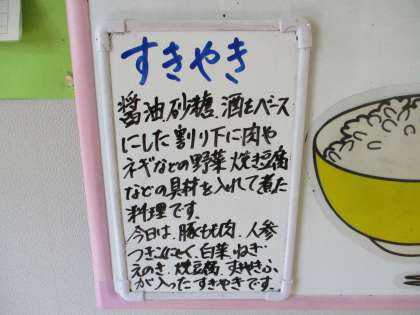 すきやき
醤油、砂糖、酒をベース
にした割り下に肉や
ネギなどの野菜、焼き豆腐
などの具材を入れて煮た
料理です。
今日は、豚もも肉、人参
つきこんにゃく、白菜、ねぎ
えのき、焼豆腐、すきやきふ
が入ったすきやきです。